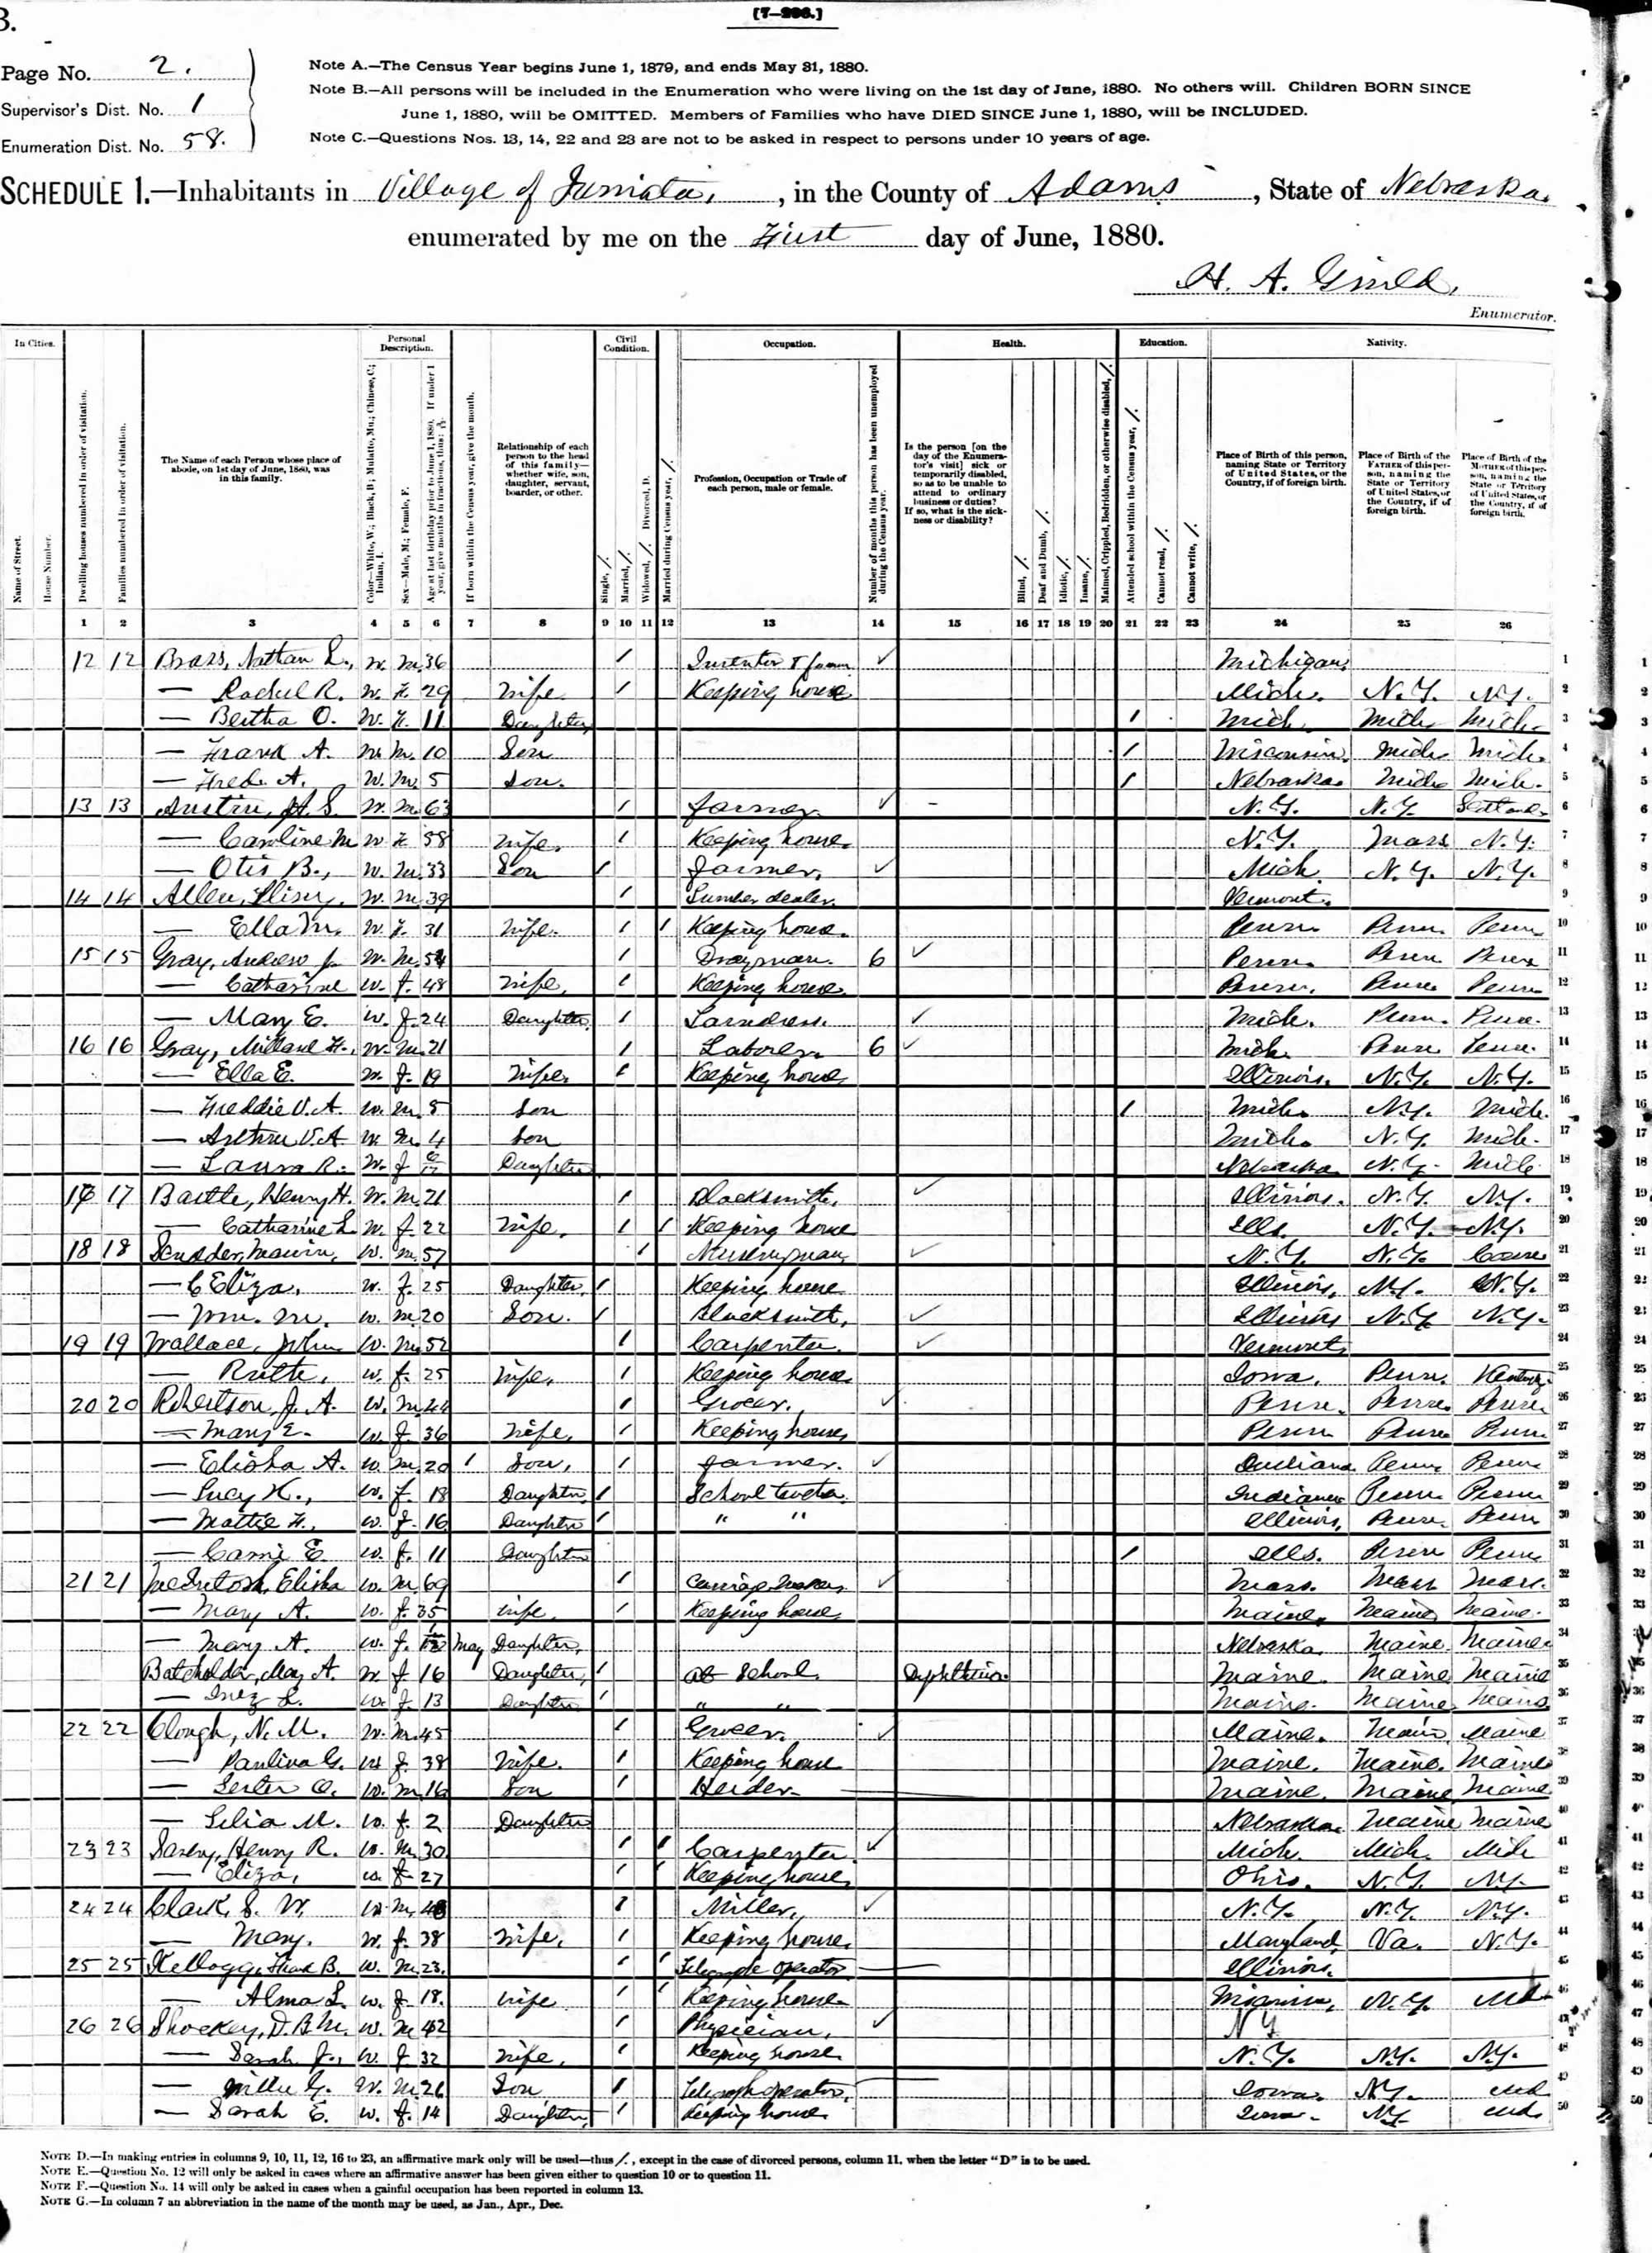 B.
[7—296.]
Page No. 2.
Supervisor's Dist. No. 1
Enumeration Dist. No. 58.
Note A.—The Census Year begins June 1, 1879, and ends May 31, 1880.
Note B.—All persons will be included in the Enumeration who were living on the 1st day of June, 1880. No others will. Children BORN SINCE
June 1, 1880, will be OMITTED. Members of Families who have DIED SINCE June 1, 1880, will be INCLUDED.
Note C.—Questions Nos. 13, 14, 22 and 23 are not to be asked in respect to persons under 10 years of age.
SCHEDULE 1.—Inhabitants in Village of Juniata, , in the County of Adams , State of Nebraska.
enumerated by me on the First day of June, 1880.
H. A. Guild,
Enumerator.
In Cities. Personal Description. Civil Condition. Occupation. Health. Education. Nativity.
Name of Street.
House Number.
Dwelling houses numbered in order of visitation.
Families numbered in order of visitation.
The Name of each Person whose place of abode, on 1st day of June, 1880, was in this family.
Color—White, W.; Black, B; Mulatto, Mu.; Chinese, C.; Indian, I.
Sex—Male, M.; Female, F.
Age at last birthday prior to June 1, 1880. If under 1 year, give months in fractions, thus: 3/12
If born within the Census year, give the month.
Relationship of each person to the head of this family—whether wife, son, daughter, servant, boarder, or other.
Single, /.
Married, /.
Widowed, /. Divorced, D.
Married during Census year, /.
Profession, Occupation or Trade of each person, male or female.
Number of months this person has been unemployed during the Census year.
Is the person [on the day of the Enumerator's visit] sick or temporarily disabled, so as to be unable to attend to ordinary business or duties? If so, what is the sickness or disability?
Blind, /.
Deaf and Dumb, /.
Idiotic, /.
Insane, /.
Maimed, Crippled, Bedridden, or otherwise disabled, /.
Attended school within the Census year, /.
Cannot read, /.
Cannot write, /.
Place of Birth of this person, naming State or Territory of United States, or the Country, if of foreign birth.
Place of Birth of the FATHER of this person, naming the State or Territory of United States, or the Country, if of foreign birth.
Place of Birth of the MOTHER of this person, naming the State or Territory of United States, or the Country, if of foreign birth.
1 2 3 4 5 6 7 8 9 10 11 12 13 14 15 16 17 18 19 20 21 22 23 24 25 26
12 12 Brass, Nathan L., W. M. 36 / Michigan 1
— Rachel R. W. F. 29 Wife / Keeping house Mich. N.Y. N.Y. 2
— Bertha O. W. F. 11 Daughter / Mich. Mich. Mich. 3
— Frank A. W. M. 10 Son / Wisconsin Mich Mich. 4
— Fred A. W. M. 5 Son. / Nebraska Mich Mich. 5
13 13 Austin, A. S. W. M. 63 / farmer N.Y. N.Y. Scotland 6
— Caroline M W F. 58 Wife. / Keeping house. N.Y. Mass N.Y. 7
— Otis B., W. M. 33 Son / farmer. Mich. N.Y. N.Y. 8
14 14 Allen, W. M. 39 / Lumber dealer. Vermont. 9
— Ella M. W. F. 31 Wife. / / Keeping house. Penn Penn Penn 10
15 15 Gray, Andrew J. W. M. 54 / Drayman. 6 Penn. Penn Penn 11
— Catharine W. f. 48 Wife. / Keeping house. Penn. Penn Penn 12
— Mary E. W. f. 24 Daughter / Laundress. Mich. Penn. Penn. 13
16 16 Gray, Millard F., W. M. 21 / Laborer 6 Mich. Penn Penn. 14
— Ella E. W. f. 19 Wife. / Keeping house Illinois. N.Y. N.Y. 15
— Freddie V. A. W. M. 5 Son / Mich. N.Y. Mich. 16
— Arthur V. A W. M. 4 Son Mich. N.Y. Mich. 17
— Laura R. W. f Daughter Nebraska N.Y. Mich. 18
17 17 Bartle, Henry H. W. M. 21 / Blacksmith. Illinois. N.Y. N.Y. 19
— Catharine L. W. f. 22 Wife. / / Keeping house Ills. N.Y. N.Y. 20
18 18 Scudder, Marvin, W. M. 57 / Nurseryman N.Y. N.Y. Conn 21
— C Eliza. W. f. 25 Daughter. / Keeping house Illinois. N.Y. N.Y. 22
— Wm. M. W. M. 20 Son. / Blacksmith. Illinois N.Y. N.Y. 23
19 19 Wallace, John W. M. 52 / Carpenter. Vermont. 24
— Ruth. W. f. 25 Wife. / Keeping house. Iowa. Penn. Kentucky 25
20 20 Robertson, J. A. W. M. 44 / Grocer. Penn. Penn. Penn. 26
— Mary E. W. f. 36 Wife. / Keeping house Penn Penn Penn 27
— Elisha A. W. M. 20 / Son. / farmer. Indiana Penn Penn 28
— Lucy K., W. f. 18 Daughter / School teacher Indiana Penn Penn 29
— Mattie F., W. f. 16 Daughter / " " Illinois. Penn. Penn 30
— Carrie E. W. f. 11 Daughter / Ills. Penn Penn 31
21 21 McIntosh, Elisha W. M. 69 / Carriage Maker Mass. Mass Mass. 32
— Mary A. W. f. 35 Wife. / Keeping house Maine. Maine Maine. 33
— Mary A. W. f. May Daughter. Nebraska. Maine. Maine. 34
Batchelder, May A. W. f 16 Daughter. / At School. Diphtheria Maine. Maine Maine 35
— Inez L. W. f. 13 Daughter / " " Maine. Maine. Maine 36
22 22 Clough, N. M. W. M. 45 / Grocer. Maine. Maine Maine 37
— Paulina G. W f. 38 Wife. / Keeping house Maine. Maine. Maine 38
— Lester O. W. M. 16 Son / Herder Maine. Maine Maine 39
— Lelia M. W. f. 2 Daughter Nebraska. Maine Maine 40
23 23 Henry R. W. M. 30 / / Carpenter. Mich. Mich. Mich 41
— Eliza, W. f. 27 / / Keeping house. Ohio. N.Y. N.Y. 42
24 24 Clark, S. W. W. M. 48 / Miller. N.Y. N.Y. N.Y. 43
— Mary. W. f. 38 Wife. / Keeping house. Maryland Va. N.Y. 44
25 25 Kellogg, Frank B. W. M. 23. / / Telegraph Operator Illinois. 45
— Alma L. W. f. 18. Wife / / Keeping house N.Y. Md 46
26 26 Shockey, D. B M. W. M 42 / Physician. N Y 47
— Sarah J., W. f 32 Wife. / Keeping house N.Y. N.Y. N.Y. 48
— Willie G. W. M. 26 Son / Telegraph operator. Iowa. N.Y. Md 49
— Sarah E. W. f. 14 Daughter / Keeping house Iowa. N.Y. Md. 50
NOTE D.—In making entries in columns 9, 10, 11, 12, 16 to 23, an affirmative mark only will be used—thus /., except in the case of divorced persons, column 11, when the letter "D" is to be used.
NOTE E.—Question No. 12 will only be asked in cases where an affirmative answer has been given either to question 10 or to question 11.
NOTE F.—Question No. 14 will only be asked in cases when a gainful occupation has been reported in column 13.
NOTE G.—In column 7 an abbreviation in the name of the month may be used, as Jan., Apr., Dec.